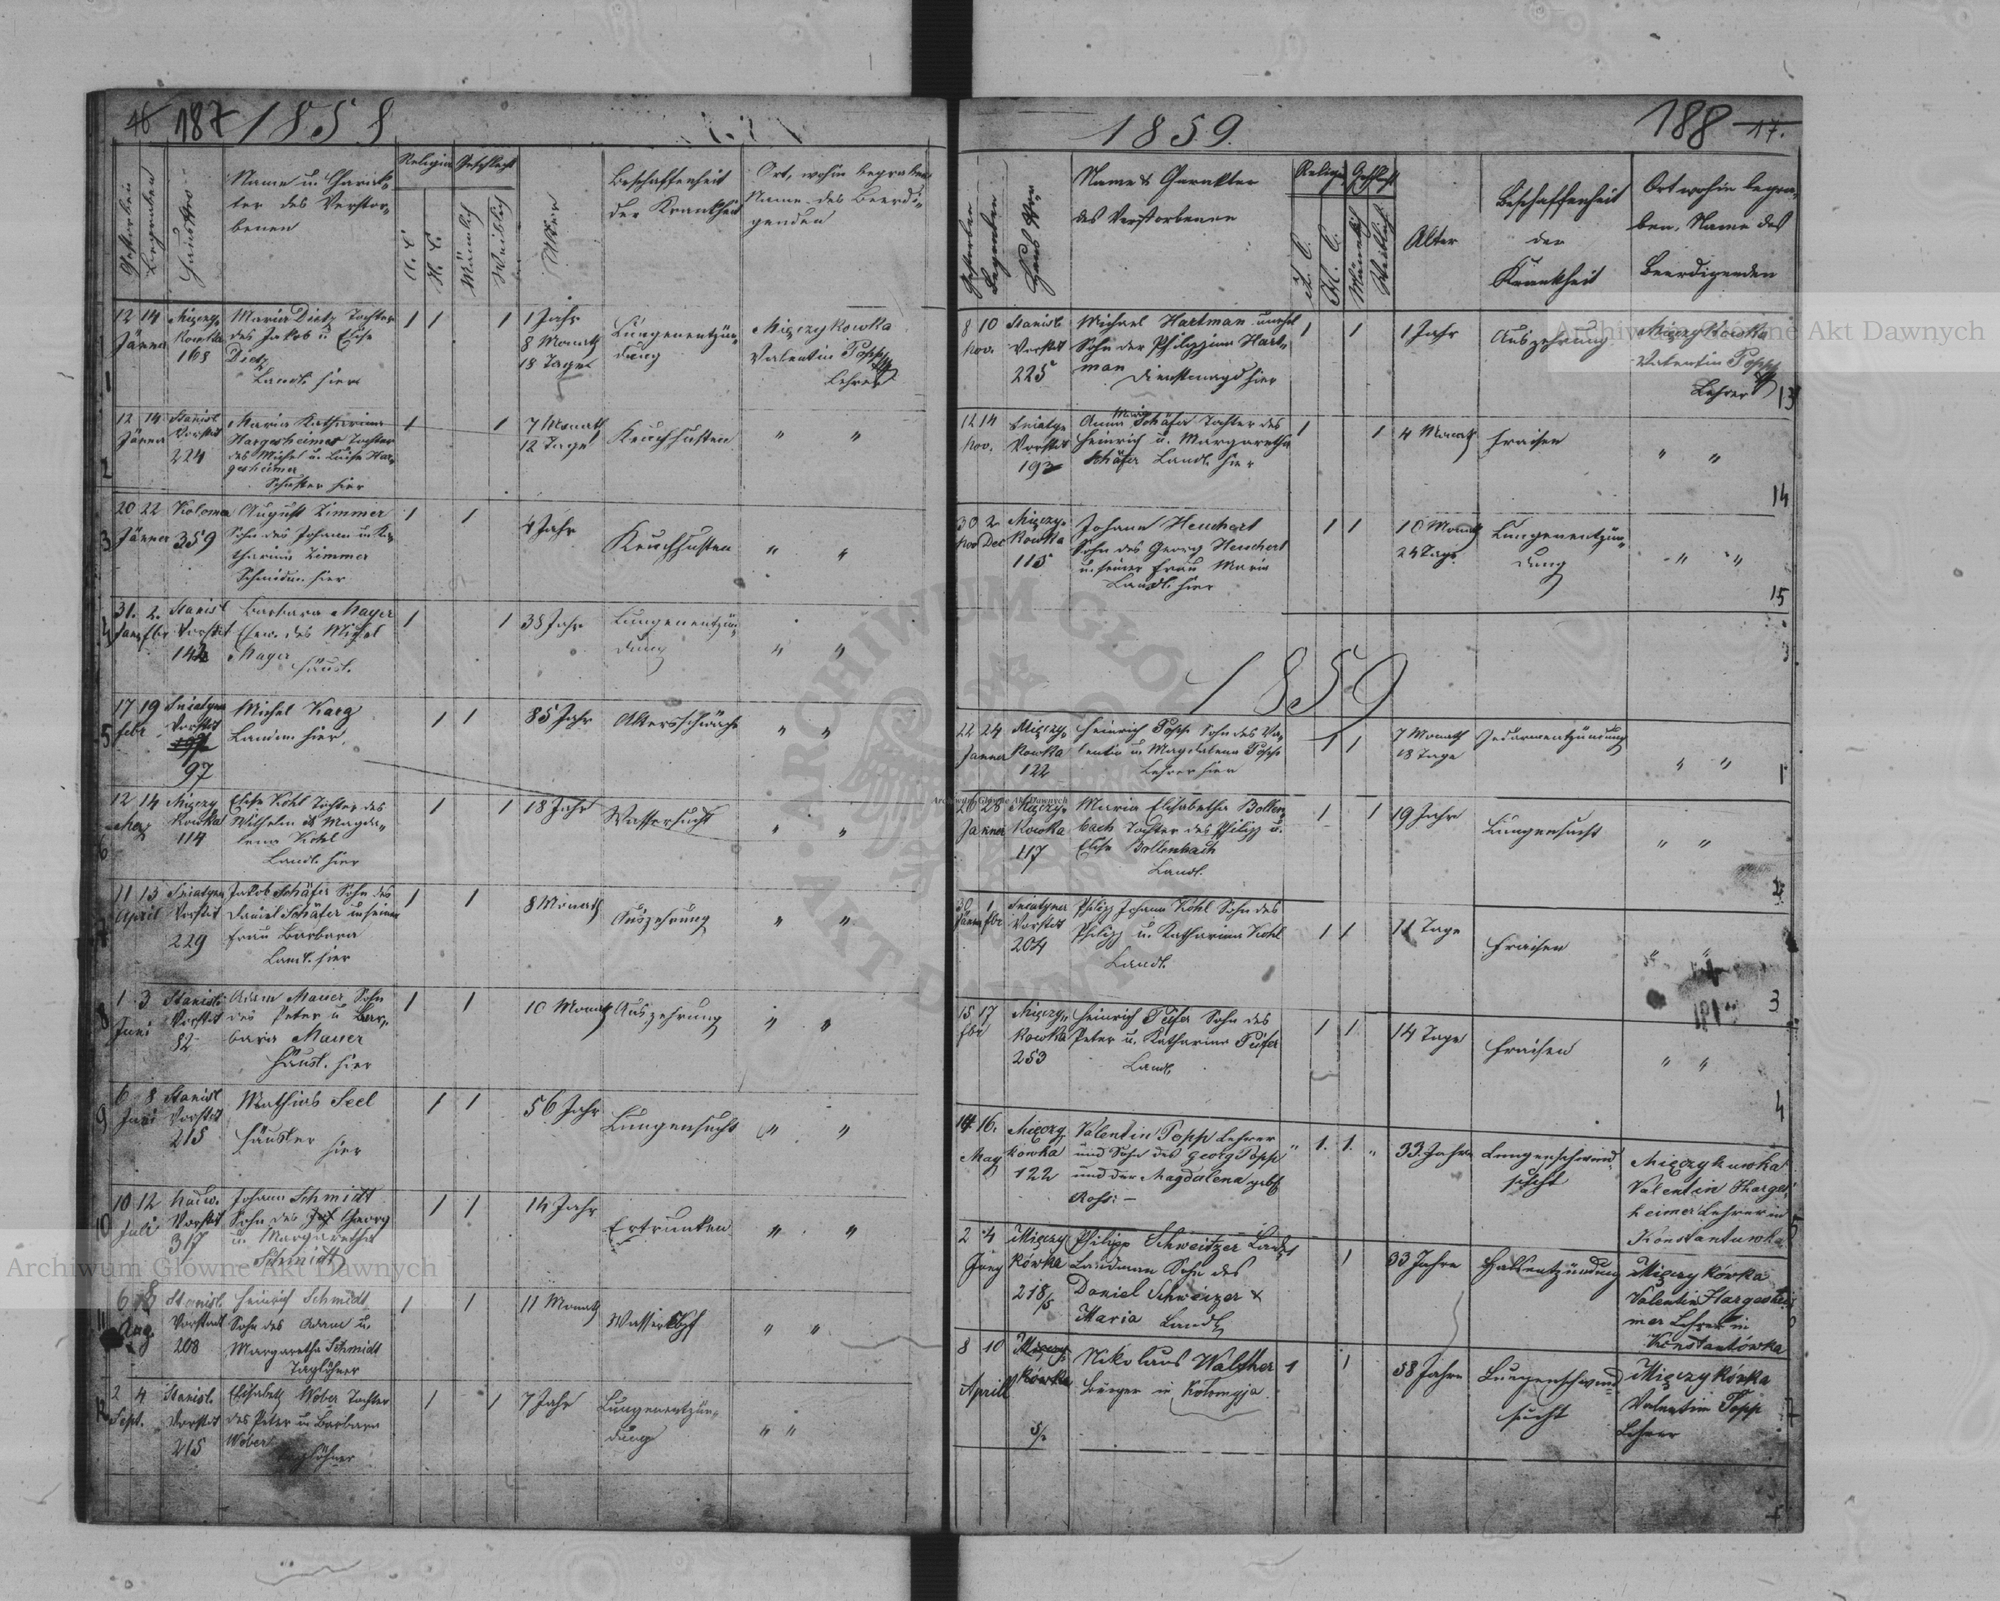 187 1858
Name u. Charak-
ter des Verstor-
benen
Religion Geschlecht
Gestorben
Begraben
Haus Nro
A. C.
H. C.
Männlich
Weiblich
Beschaffenheit
der Krankheit
Ort, wohin begraben
Name des Beerdi-
genden
12 14 Jänner
Mięczy-
kowka
168
Maria Dietz Tochter
des Jakob u Elise
Dietz
Landl. hier
1 1 1
1 Jahr
8 Monath
18 Tage
Lungenentzün-
dung
Mięczykowka
Valentin Popp
Lehrer
1
12 14 Jänner
Stanisl
Vorstat
224
Maria Katharina
Hargesheimer Tochter
des Michel u. Luise Har-
gesheimer
Schuster hier
1 1
7 Monath
12 Tage
Keuchhusten
" "
2
20 22 Jänner
Kolomea
359
August Zimmer
Sohn des Johann u Ka-
tharina Zimmer
Schmidm. hier
1 1
4 Jahr
Keuchhusten
" "
3
31. 2.
Jan. fbr
Stanisl
Vorstat
142
Barbara Mayer
Ehew. des Michel
Mayer
Häusl.
1 1
38 Jahr
Lungenentzün-
dung
" "
4
17 19 febr
Sniatyn
Vorstat
97
Michel Karg
Landm hier.
1 1
85 Jahr
Altersschwäche
" "
5
12 14
Merz
Mięczy
kowka
114
Elise Kohl Tochter des
Wilhelm & Magda-
lena Kohl
Landl. hier
1 1
18 Jahr
Wassersucht
" "
6
11 13
April
Sniatyn
Vorstat
229
Jakob Schäfer Sohn des
Daniel Schäfer u seiner
Frau Barbara
Landl. hier
1 1
8 Monath
Auszehrung
" "
1 3
Juni
Stanisl.
Vorstat
82
Adam Mauer Sohn
des Peter u Bar-
bara Mauer
Häusl. hier
1 1
10 Monath
Auszehrung
" "
8
6 8
Juni
Stanisl
Vorstat
215
Mathias Seel
Häusler
hier
1 1
56 Jahr
Lungensucht
" "
9
10 12
Juli
Nadw.
Vorstat
317
Johann Schmidt
Sohn des Georg
u. Margaretha
Schmidt
1 1
14 Jahr
Ertrunken
" "
10
6 8
Aug.
Stanisl.
Vorstadt
208
Heinrich Schmidt
Sohn des Adam u.
Margaretha Schmidt
Taglöhner
1 1
11 Monath
Wasserkopf
" "
11
2 4
Sept.
Stanisl.
Vorstat
215
Elisabeth Wober Tochter
des Peter u Barbara
Wober
Taglöhner
1 1
7 Jahr
Lungenentzün-
dung
" "
12
1859. 188 17.
Gestorben
Begraben
Haus Nro
Name & Carakter
des Verstorbenen
A. C.
H. C.
Männlich
Weiblich
Alter
Beschaffenheit
der
Krankheit
Ort wohin begra-
ben, Name des
Beerdigenden
8 10
Nov.
Stanisl
Vorstat
225
Michael Hartman unehel
Sohn der Philippina Hart-
man
Dienstmagd hier
1 1
1 Jahr
Auszehrung
Mięczykowka
Valentin Popp
Lehrer
13
12 14
Nov.
Sniatyn
Vorstat
193
Anna Maria Schäfer Tochter des
Heinrich u. Margaretha
Schäfer Landl. hier
1 1
4 Monath
Fraisen
" "
14
30 2
Nov Dec
Mięczy-
kowka
115
Johann Heuchert
Sohn des Georg Heuchert
u. seiner Frau Maria
Landl. hier
1 1
10 Monath
24 Tage
Lungenentzün-
dung
" "
15
1859
22 24
Janner
Mięczy-
kowka
122
Heinrich Popp Sohn des Va-
lentin u Magdalena Popp
Lehrer hier
1 1
7 Monath
18 Tage
Gedarmentzündung
" "
1
26 28
Janner
Mięczy-
kowka
117
Maria Elisabetha Bollen-
bach Tochter des Philipp u.
Elise Bollenbach
Landl.
1 1
19 Jahre
Lungensucht
" "
2
30 1
Jänn fbr
Sniatyner
Vorstat
204
Philipp Johann Kohl Sohn des
Philipp u. Katharina Kohl
Landl.
1 1
11 Tage
Fraisen
" "
3
15 17
fbr
Mięczy-
kowka
253
Heinrich Peifer Sohn des
Peter u. Katharina Peifer
Landl.
1 1
14 Tage
Fraisen
" "
4
14 16.
May
Mięczy
kowka
122
Valentin Popp Lehrer
und Sohn des Georg Popp
und der Magdalena geb.
Rohs: —
" 1. 1. "
33 Jahre
Lungenschwind-
sucht
Mięczykuwka
Valentin Harges-
heimer Lehrer in
Konstantuwka
5
2 4
Juny
Mięczy
kówka
218/5
Philipp Schweitzer
Landman Sohn des
Daniel Schweizer &
Maria Landl
1 1
33 Jahre
Halsentzündung
Mięczykówka
Valentin Hargeshei-
mer Lehrer in
Konstantówka
8 10
Aprill
Mięczy-
kówka
Nikolaus Walther
Bürger in Kolomyja
1 1
58 Jahre
Lungenschwind-
sucht
Mięczykówka
Valentin Popp
Lehrer
7
Archiwum Główne Akt Dawnych
Archiwum Główne Akt Dawnych
Archiwum Główne Akt Dawnych
ARCHIWUM GŁÓWNE
AKT DAWNYCH